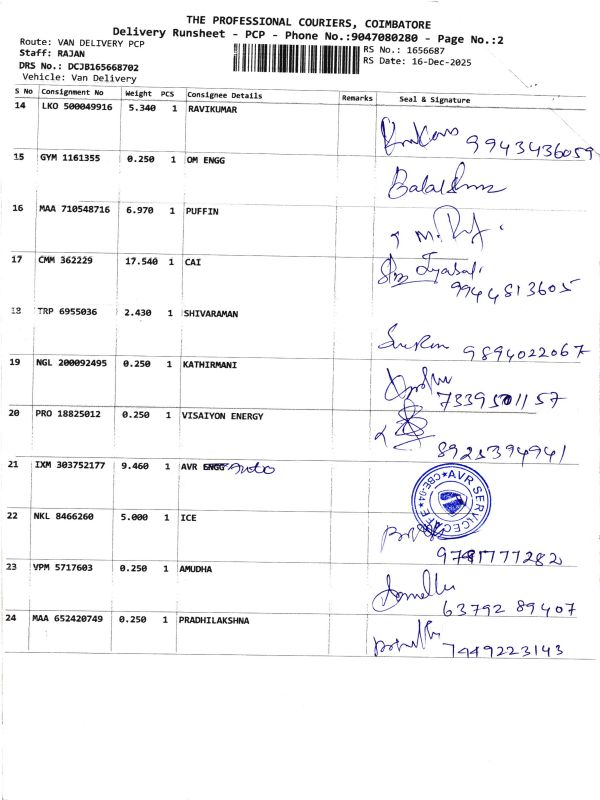 THE PROFESSIONAL COURIERS, COIMBATORE
Delivery Runsheet - PCP - Phone No.:9047080280 - Page No.:2
Route: VAN DELIVERY PCP
Staff: RAJAN
DRS No.: DCJB165668702
Vehicle: Van Delivery
RS No.: 1656687
RS Date: 16-Dec-2025
S No Consignment No Weight PCS Consignee Details Remarks Seal & Signature
14 LKO 500049916 5.340 1 RAVIKUMAR
9943436059
15 GYM 1161355 0.250 1 OM ENGG
16 MAA 710548716 6.970 1 PUFFIN
17 CMM 362229 17.540 1 CAI
9944813605
18 TRP 6955036 2.430 1 SHIVARAMAN
9894022067
19 NGL 200092495 0.250 1 KATHIRMANI
20 PRO 18825012 0.250 1 VISAIYON ENERGY
8925394941
21 IXM 303752177 9.460 1 AVR ENGG
AVR SERVICE CBE-04
22 NKL 8466260 5.000 1 ICE
23 VPM 5717603 0.250 1 AMUDHA
63792 89407
24 MAA 652420749 0.250 1 PRADHILAKSHNA
7449223143